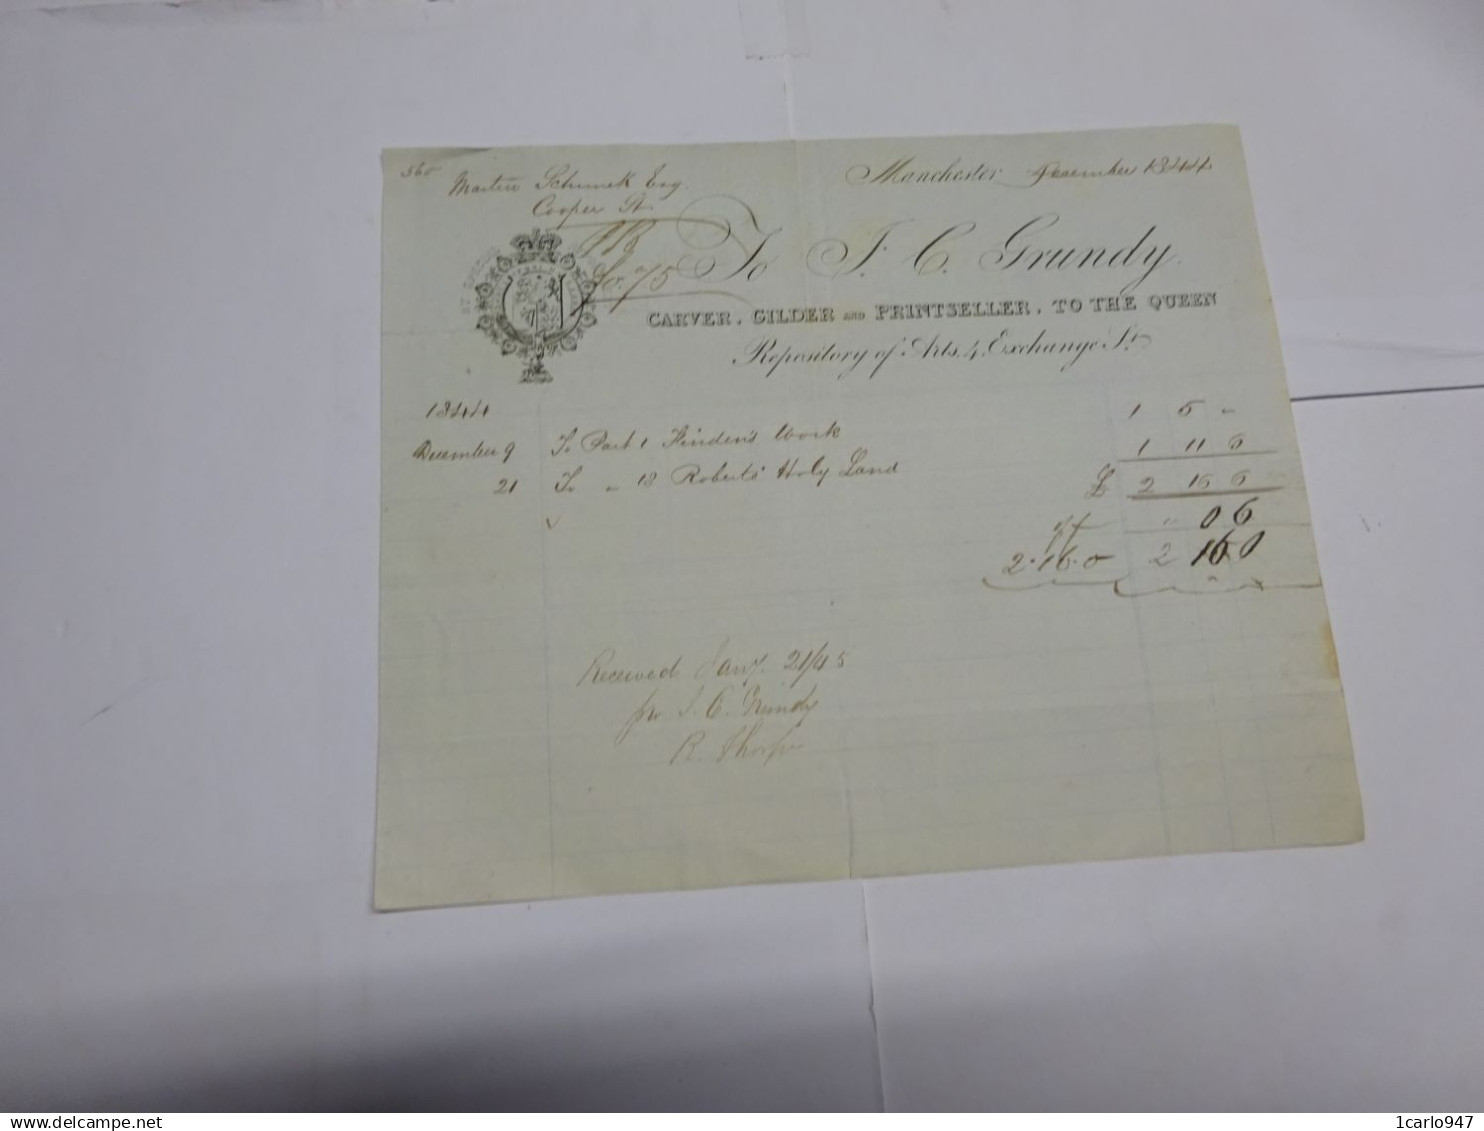 560
Martin Schunck Esq.
Cooper St.
Manchester December 1844
No. 75
To J. C. Grundy.
CARVER, GILDER AND PRINTSELLER, TO THE QUEEN
Repository of Arts, 4, Exchange St.
1844
December 9 To Part 1 Finden's Work 1 5 "
21 To " 13 Roberts' Holy Land 1 11 6
£ 2 16 6
" 0 6
2.16.0 2 16 0
Received Jany. 21/45
for J. C. Grundy
R. Thorpe
delcampe.net
1carlo947